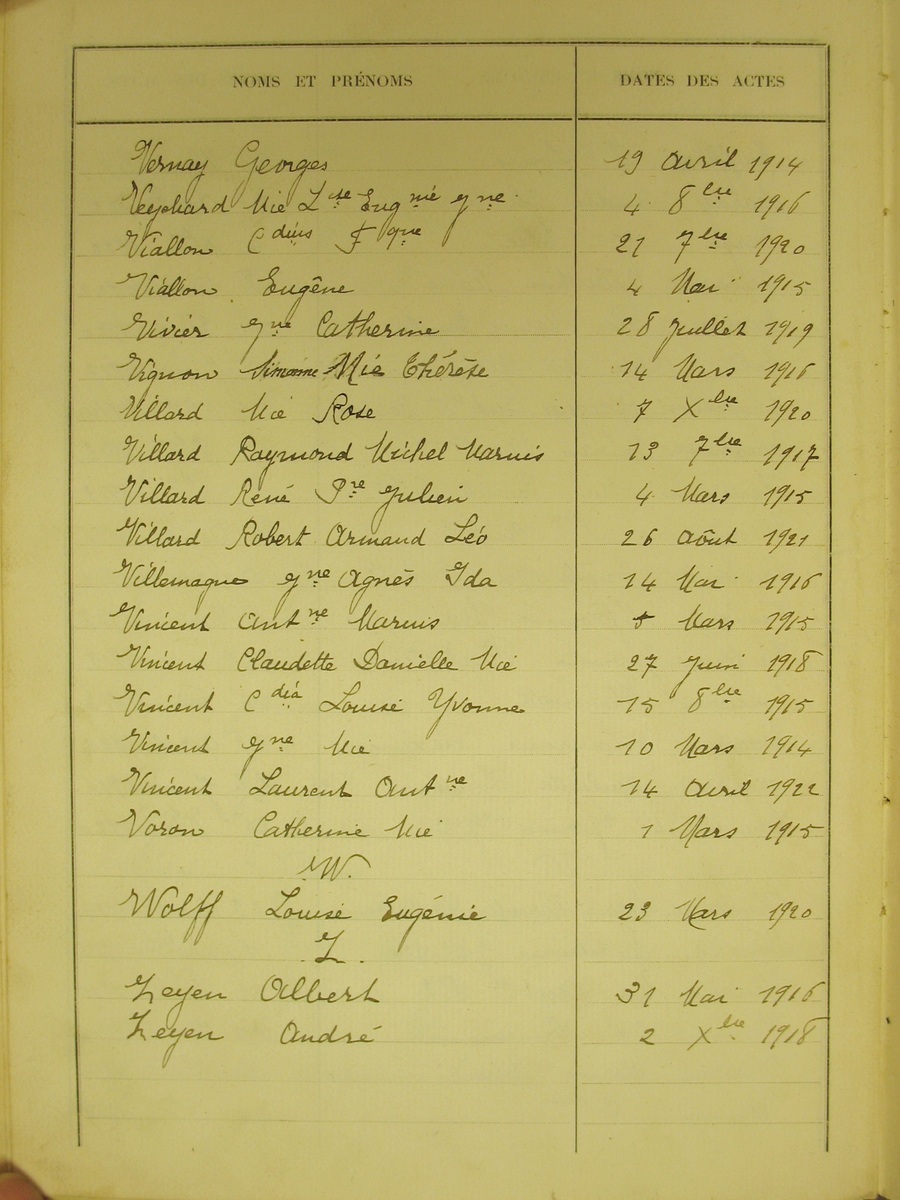 NOMS ET PRÉNOMS DATES DES ACTES
Vernay Georges 19 Avril 1914
Veychard Mie Lse Eugnie Jne 4 8bre 1916
Viallon Cdius Fque 21 7bre 1920
Viallon Eugène 4 Mai 1915
Vivier Jne Catherine 28 Juillet 1919
Vignon Simonne Mie Thérèse 14 Mars 1916
Villard Mie Rose 7 Xbre 1920
Villard Raymond Michel Marius 13 7bre 1917
Villard René Pre Julien 4 Mars 1915
Villard Robert Armand Léo 26 Août 1921
Villemagne Jne Agnès Ida 14 Mai 1916
Vincent Antne Marius 5 Mars 1915
Vincent Claudette Danielle Mie 27 Juin 1918
Vincent Cdia Louise Yvonne 15 8bre 1915
Vincent Jne Mie 10 Mars 1914
Vincent Laurent Antne 14 Avril 1922
Voron Catherine Mie 1 Mars 1915
W.
Wolff Louise Eugénie 23 Mars 1920
Z.
Zeyen Albert 31 Mai 1916
Zeyen André 2 Xbre 1918